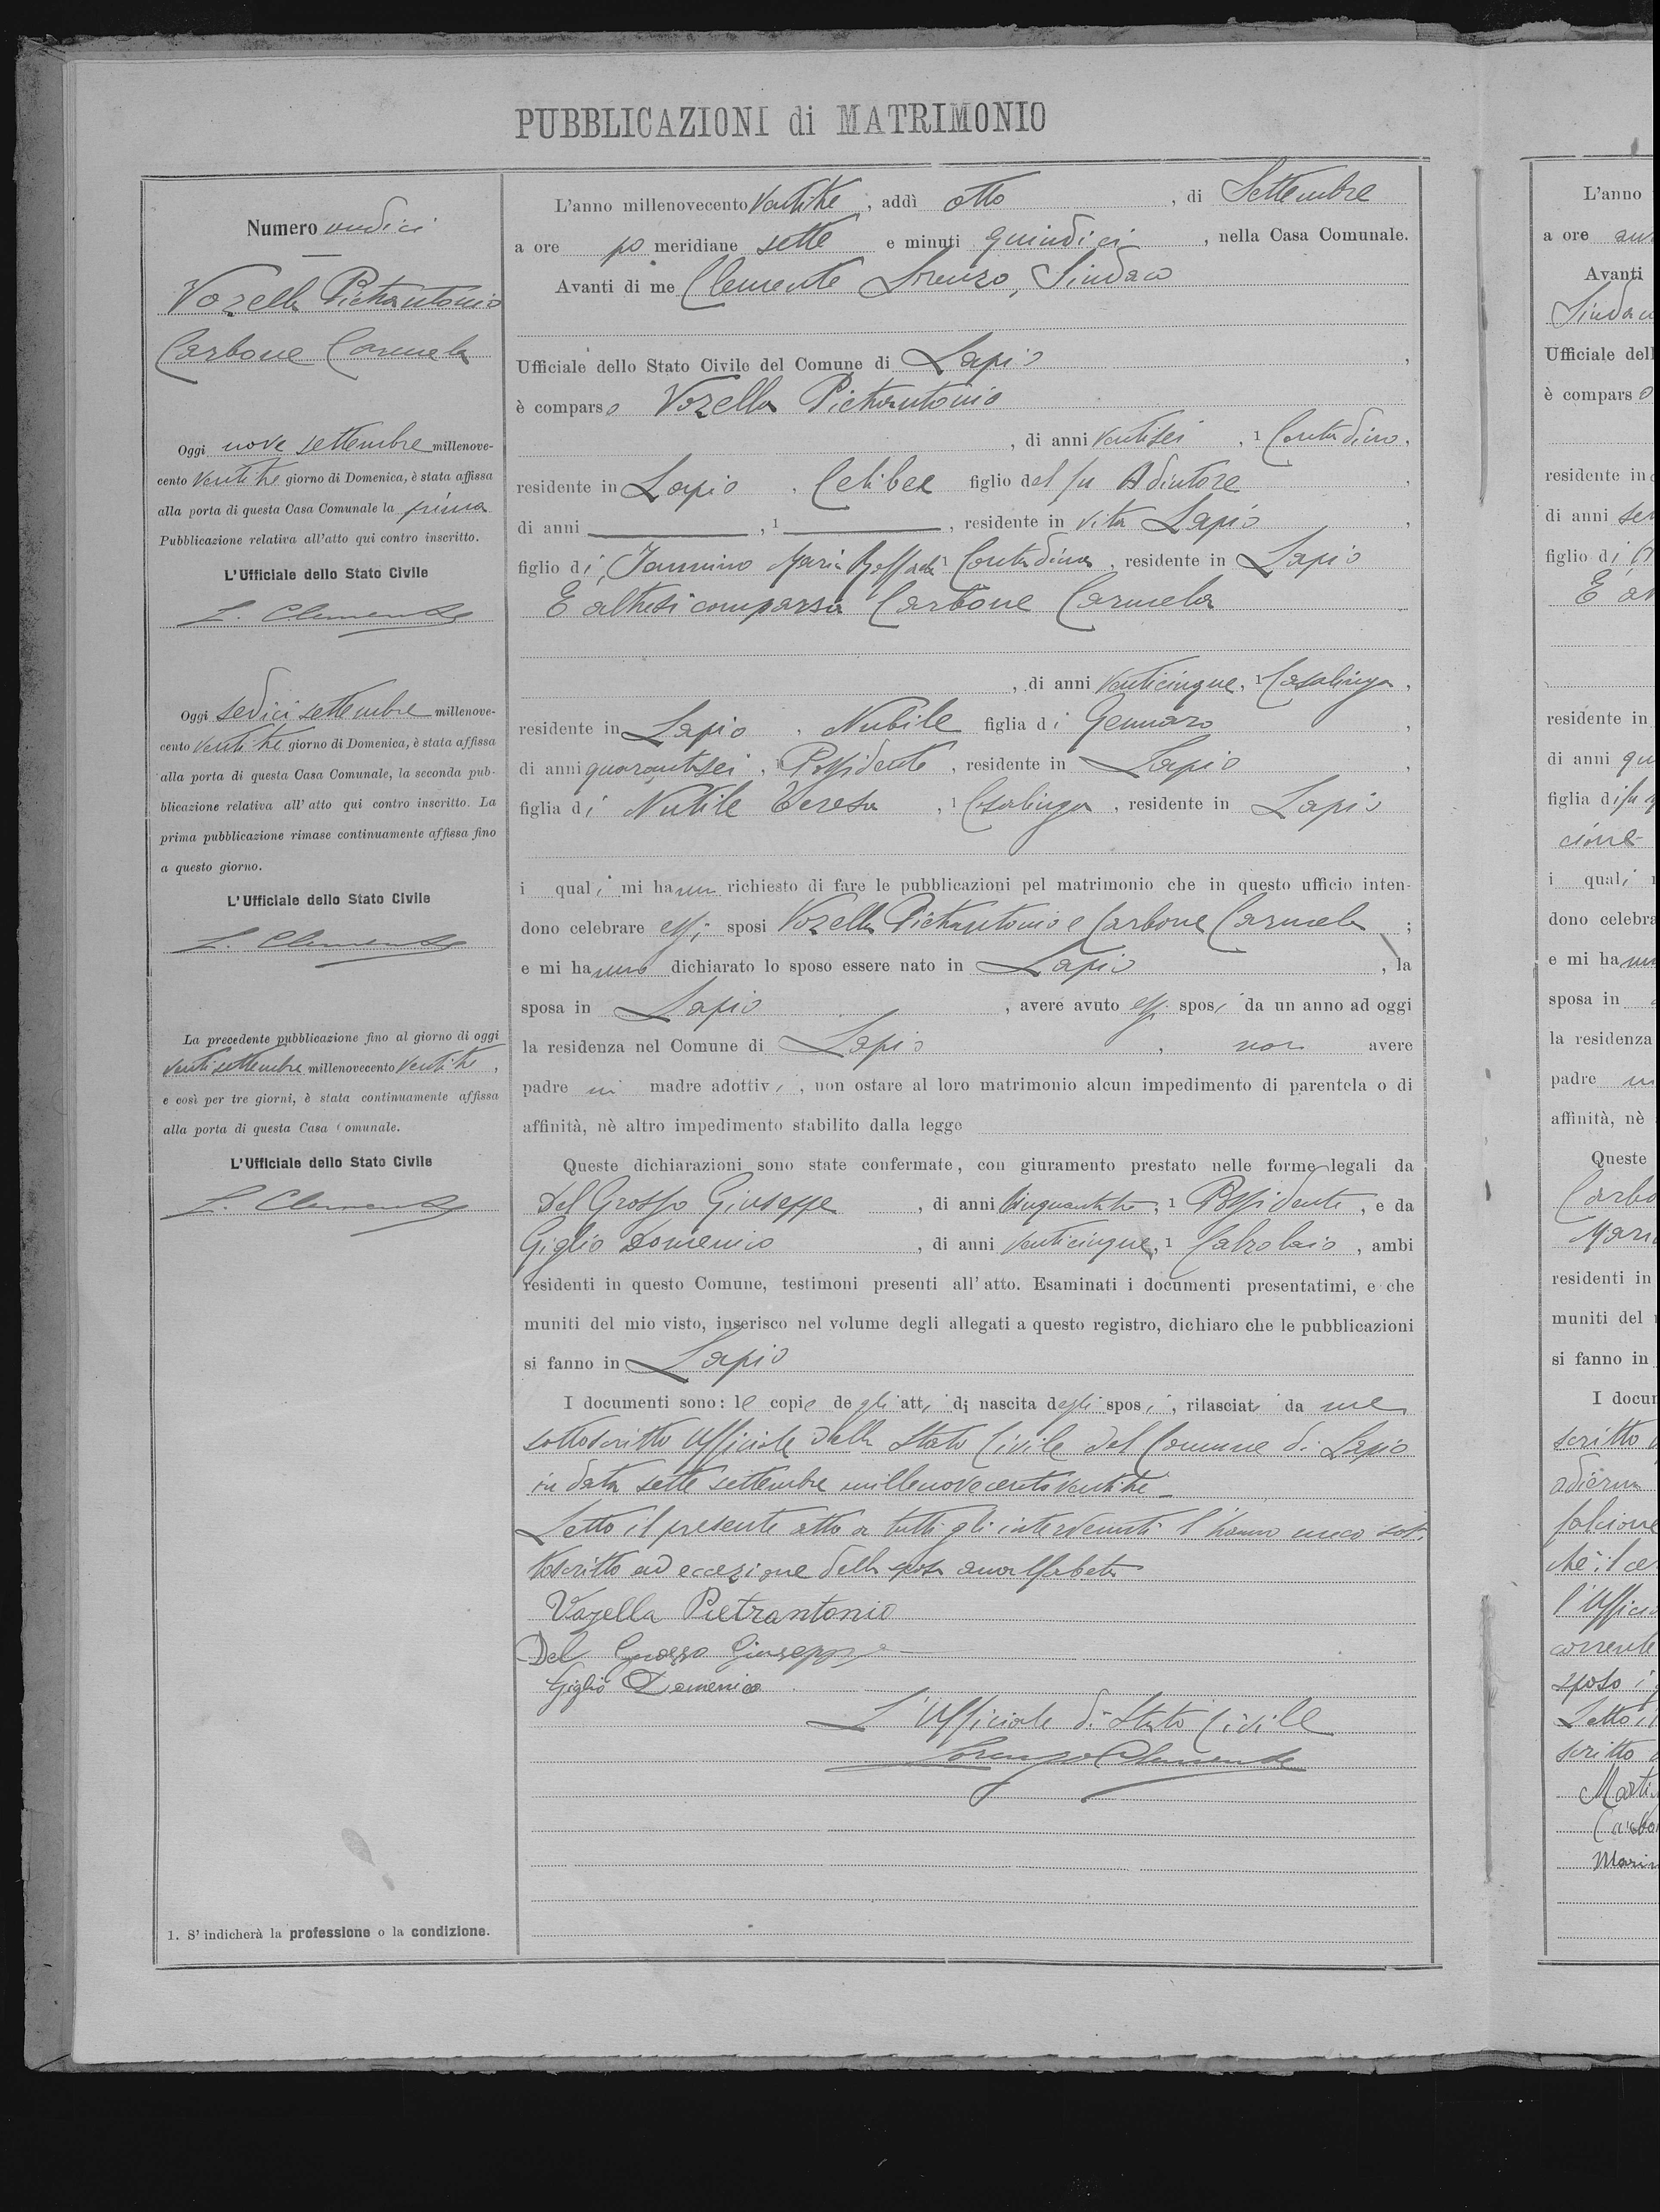 PUBBLICAZIONI di MATRIMONIO
Numero undici
Vozella Pietrantonio
Carbone Carmela
Oggi nove settembre millenove-
cento ventitre giorno di Domenica, è stata affissa
alla porta di questa Casa Comunale la prima
Pubblicazione relativa all'atto qui contro inscritto.
L'Ufficiale dello Stato Civile
L. Clemente
Oggi sedici settembre millenove-
cento ventitre giorno di Domenica, è stata affissa
alla porta di questa Casa Comunale, la seconda pub-
blicazione relativa all'atto qui contro inscritto. La
prima pubblicazione rimase continuamente affissa fino
a questo giorno.
L'Ufficiale dello Stato Civile
L. Clemente
La precedente pubblicazione fino al giorno di oggi
venti settembre millenovecento ventitre,
e così per tre giorni, è stata continuamente affissa
alla porta di questa Casa Comunale.
L'Ufficiale dello Stato Civile
L. Clemente
1. S'indicherà la professione o la condizione.
L'anno millenovecento ventitre, addì otto, di Settembre
a ore po meridiane sette e minuti quindici, nella Casa Comunale.
Avanti di me Clemente Lorenzo, Sindaco
Ufficiale dello Stato Civile del Comune di Lapio,
è comparso Vozella Pietrantonio
, di anni ventisei, 1 Contadino,
residente in Lapio, Celibe figlio del fu Adiutore,
di anni , 1 , residente in vita Lapio,
figlio di Iannino Maria Raffaela 1 Contadina, residente in Lapio
E altresi comparsa Carbone Carmela
, di anni venticinque, 1 Casalinga,
residente in Lapio, Nubile figlia di Gennaro,
di anni quarantasei, Possidente, residente in Lapio,
figlia di Nutile Teresa, 1 Casalinga, residente in Lapio
i quali mi hanno richiesto di fare le pubblicazioni pel matrimonio che in questo ufficio inten-
dono celebrare essi sposi Vozella Pietrantonio e Carbone Carmela;
e mi hanno dichiarato lo sposo essere nato in Lapio, la
sposa in Lapio, avere avuto essi sposi da un anno ad oggi
la residenza nel Comune di Lapio, non avere
padre ni madre adottivi, non ostare al loro matrimonio alcun impedimento di parentela o di
affinità, nè altro impedimento stabilito dalla legge
Queste dichiarazioni sono state confermate, con giuramento prestato nelle forme legali da
Del Grosso Giuseppe, di anni cinquantatre, 1 Possidente, e da
Giglio Domenico, di anni venticinque, 1 Calzolaio, ambi
residenti in questo Comune, testimoni presenti all'atto. Esaminati i documenti presentatimi, e che
muniti del mio visto, inserisco nel volume degli allegati a questo registro, dichiaro che le pubblicazioni
si fanno in Lapio
I documenti sono: le copie degli atti di nascita degli sposi, rilasciati da me
sottoscritto Ufficiale dello Stato Civile del Comune di Lapio
in data sette settembre millenovecentoventitre
Letto il presente atto a tutti gli intervenuti l'hanno meco sot-
toscritto ad eccezione della sposa analfabeta
Vozella Pietrantonio
Del Grosso Giuseppe
Giglio Domenico
L'Ufficiale di Stato Civile
Lorenzo Clemente
L'anno
a ore
Avanti
Sindaco
Ufficiale dell
è comparso
residente in
di anni
figlio di
residente in
di anni
figlia di fu
i quali
dono celebra
e mi hanno
sposa in
la residenza
padre
affinità, nè
Queste
Carbo
residenti in
muniti del
si fanno in
I docum
scritto
l'Uffici
corrente
sposo
Letto
scritto
Marti
Marin